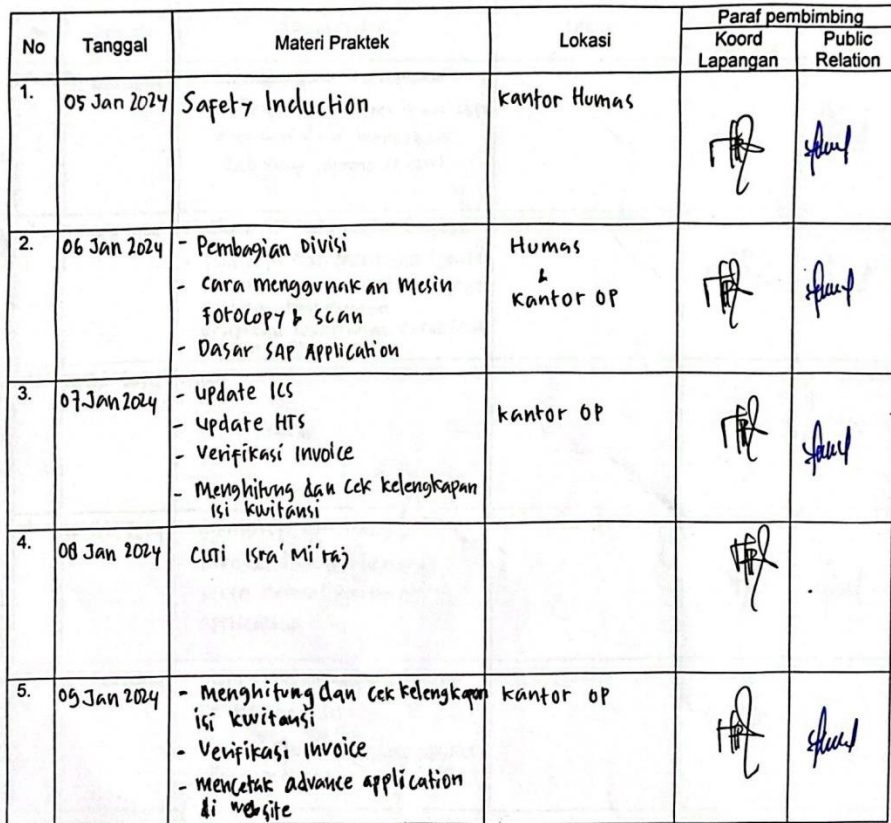 No Tanggal Materi Praktek Lokasi Paraf pembimbing
Koord Lapangan Public Relation
1. 05 Jan 2024 Safety Induction Kantor Humas
2. 06 Jan 2024 - Pembagian Divisi Humas
- Cara menggunakan Mesin &
fotocopy & scan Kantor OP
- Dasar SAP Application
3. 07 Jan 2024 - update ICS Kantor OP
- update HTS
- Verifikasi Invoice
- Menghitung dan Cek kelengkapan
isi kwitansi
4. 08 Jan 2024 Cuti Isra' Mi'raj
5. 09 Jan 2024 - Menghitung dan Cek kelengkapan Kantor OP
isi kwitansi
- Verifikasi Invoice
- mencetak advance application
di website